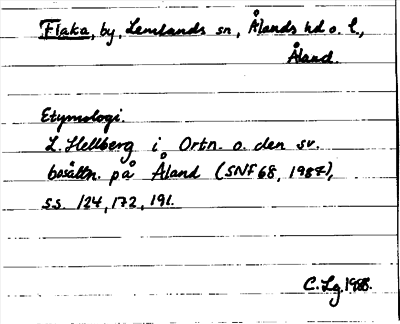 Flaka, by, Lemlands sn, Ålands hd o. l.,
Åland.
Etymologi.
L. Hellberg i Ortn. o. den sv.
bosättn. på Åland (SNF 68, 1987),
ss 124, 172, 191.
C. Lg. 1988.